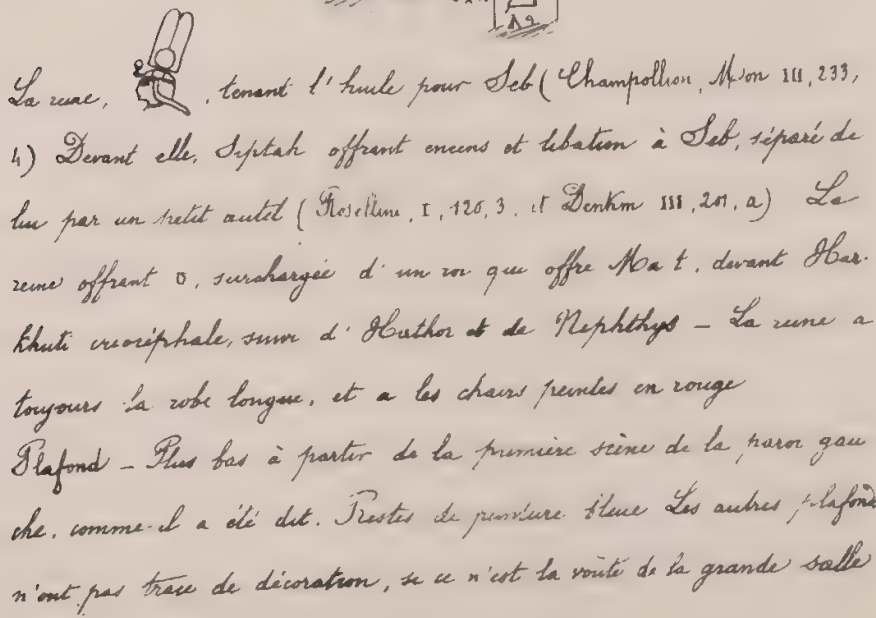 La reine, , tenant l'huile pour Seb (Champollion, Mon III, 233,
4) Devant elle, Siptah offrant encens et libation à Seb, séparé de
lui par un petit autel (Rosellini, I, 120, 3, et Denkm III, 201, a) La
reine offrant o, surchargée d'un roi que offre Ma t, devant Har-
khuti criocéphale, suivi d'Hathor et de Nephthys – La reine a
toujours la robe longue, et a les chairs peintes en rouge
Plafond – Plus bas à partir de la première scène de la paroi gau
che, comme il a été dit. Restes de peinture bleue Les autres plafonds
n'ont pas trace de décoration, si ce n'est la voûte de la grande salle